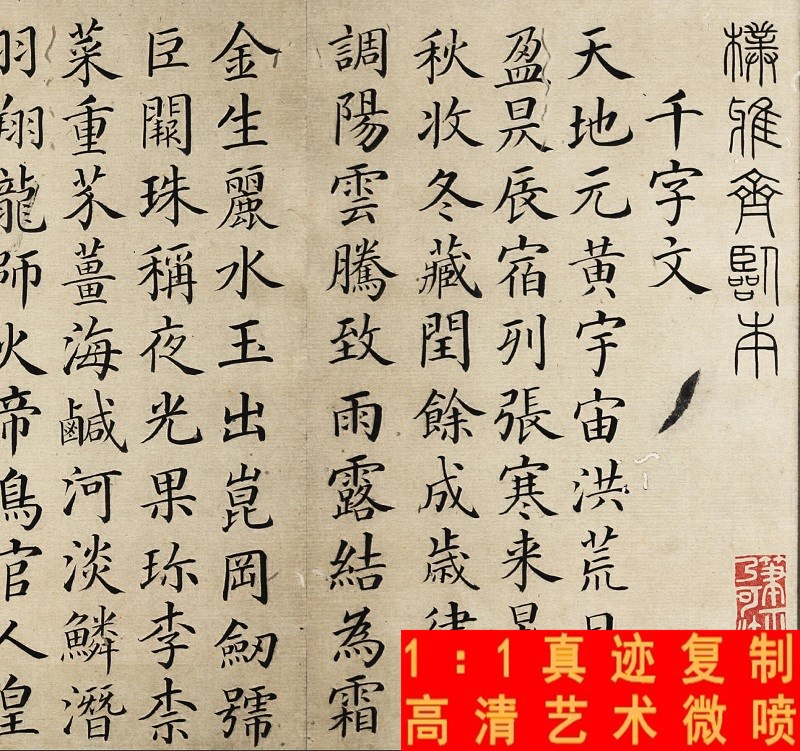 樸雅齊臨本
千字文
天地元黄宇宙洪荒日
盈昃辰宿列張寒来
秋收冬藏閏餘成歲律
調陽雲騰致雨露結為霜
金生麗水玉出崑岡劒號
巨闕珠稱夜光果珎李柰
菜重芥薑海鹹河淡鱗潛
羽翔龍師火帝鳥官人皇
1:1真迹复制
高清艺术微喷